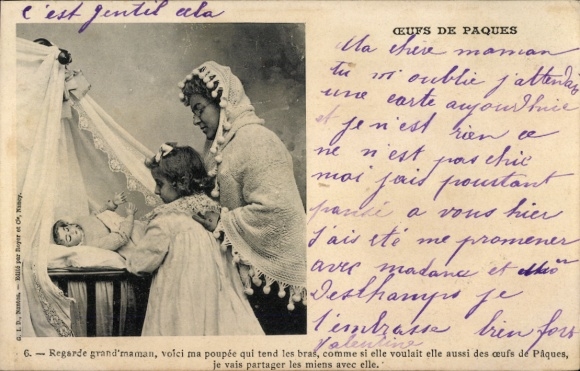 c'est gentil cela
ŒUFS DE PAQUES
Ma chère maman
tu m'oublie j'attendas
une carte aujourd'huie
et je n'est rien ce
ne n'est pas chic
moi j'ais poustant
pansé a vous hier
j'ais été me promener
avec madame et
Deschamps je
t'embrasse bien fort
Valentine
G. I. D., Nancy. — Édité par Royer et Cie, Nancy.
6. — Regarde grand'maman, voici ma poupée qui tend les bras, comme si elle voulait elle aussi des œufs de Pâques,
je vais partager les miens avec elle.